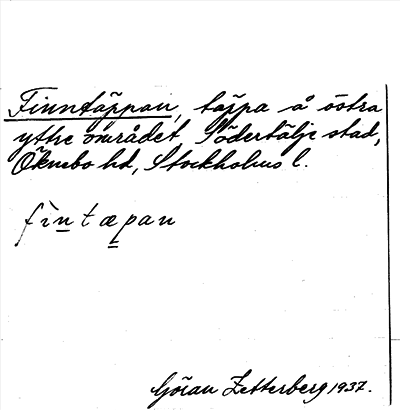 Finntäppan, täppa å östra
yttre området Södertälje stad,
Öknebo hd, Stockholms l.
fìn̲tæ̳pan
Göran Zetterberg 1937.